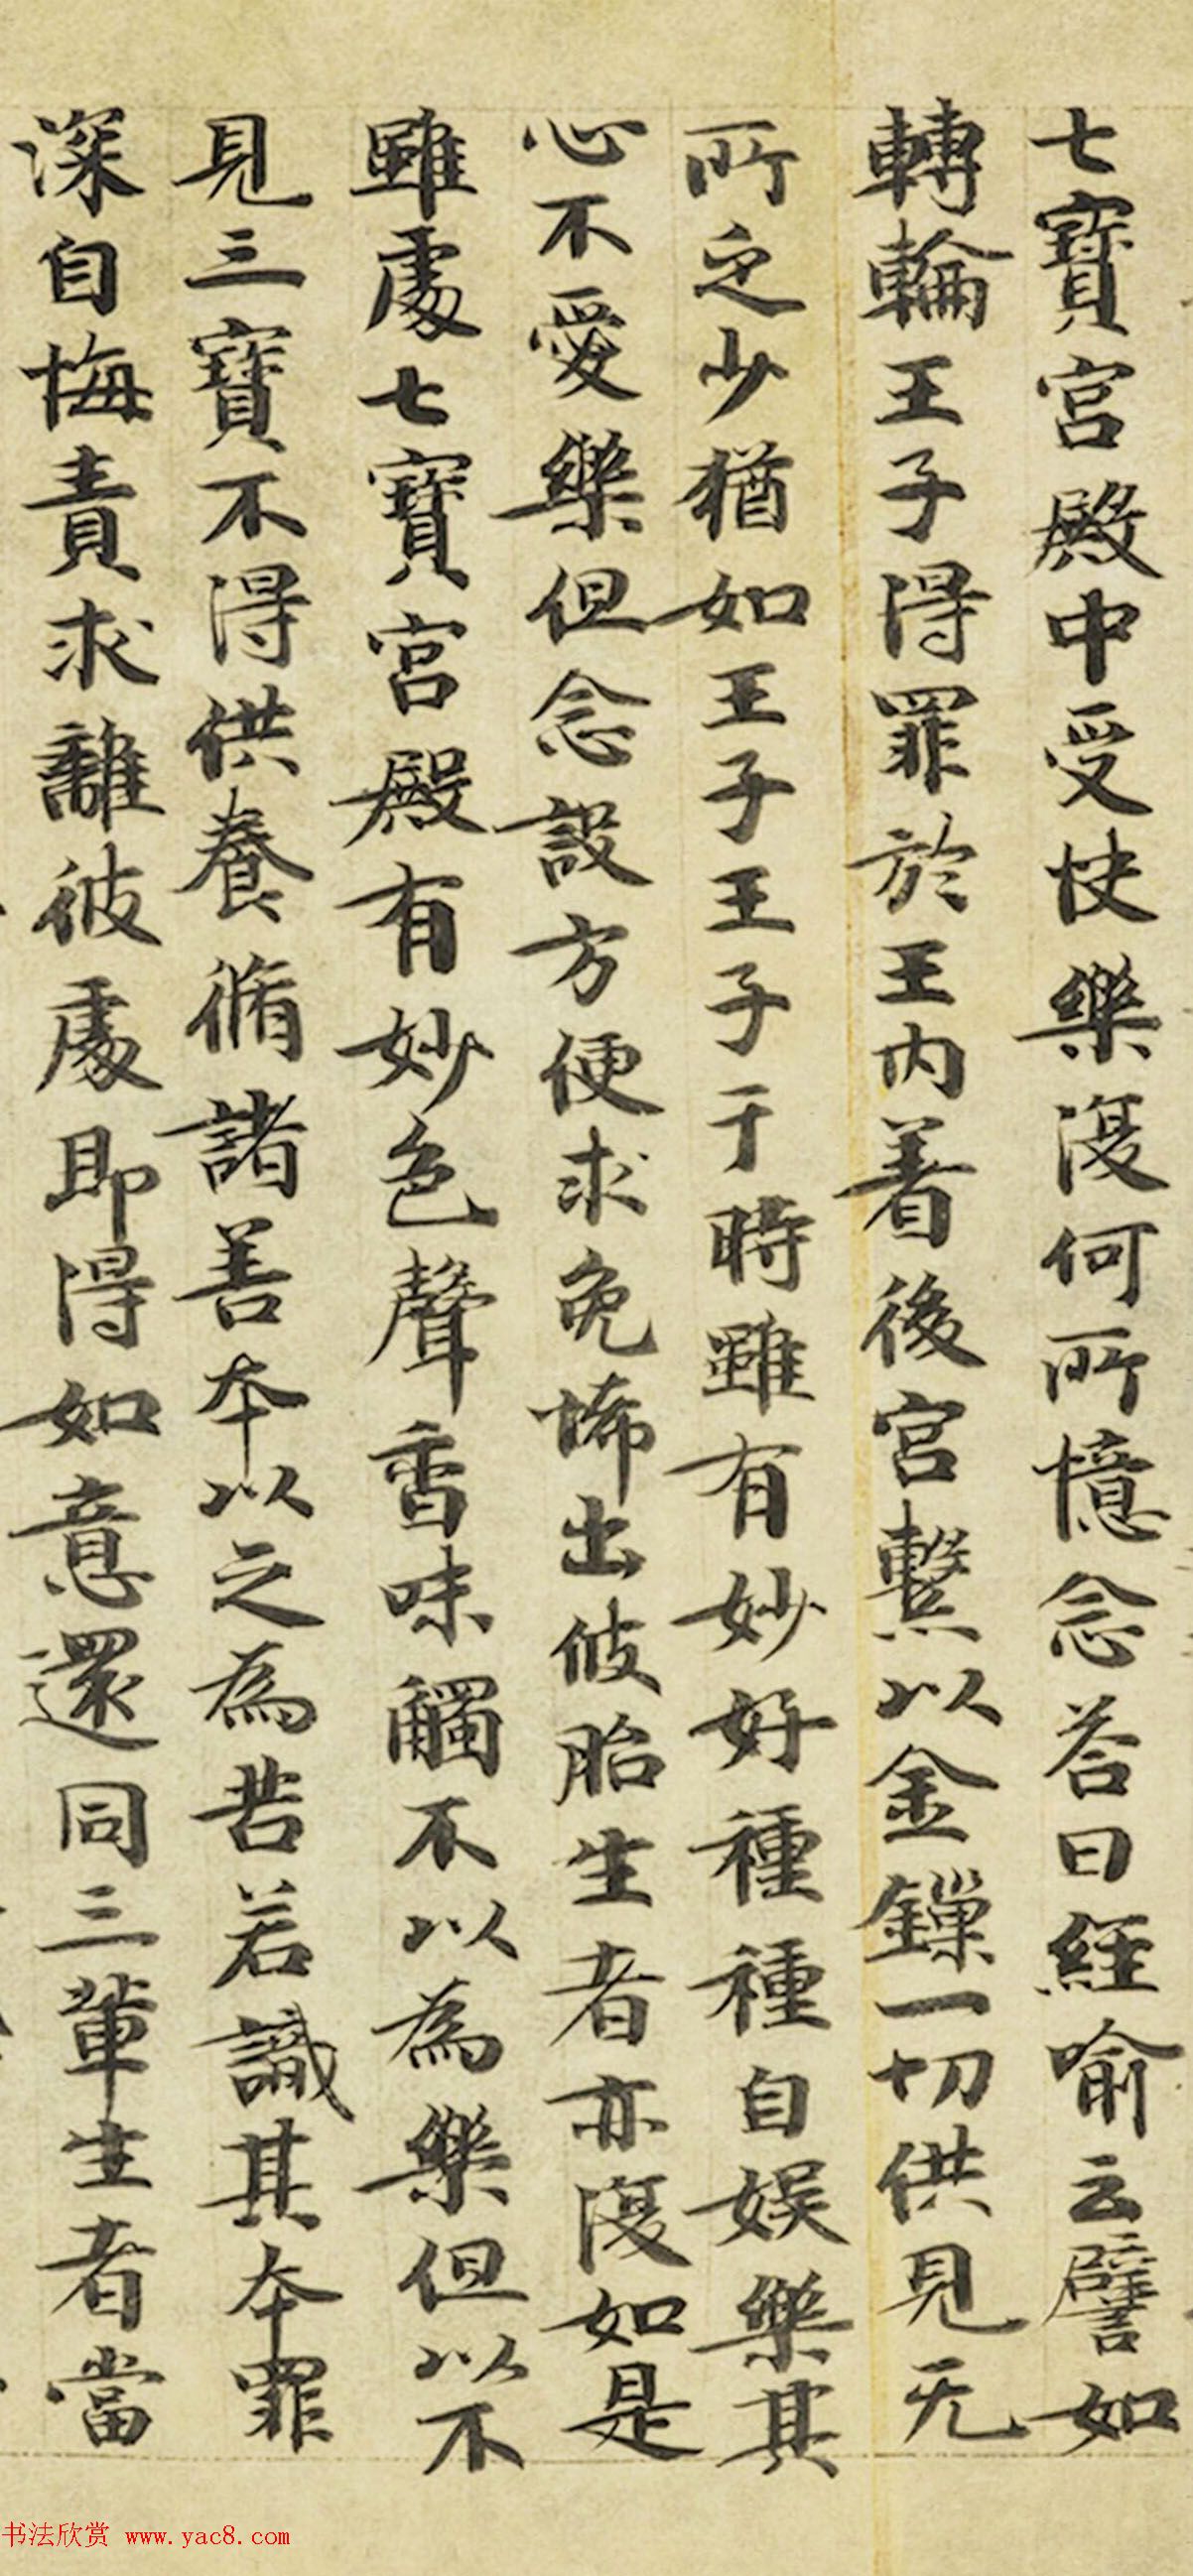 七寶宮殿中受快樂復何所憶念荅曰經喻云譬如
轉輪王子得罪於王內著後宮繫以金鏁一切供具无
所乏少猶如王子王子于時雖有妙好種種自娛樂其
心不愛樂但念設方便求免悕出彼胎生者亦復如是
雖處七寶宮殿有妙色聲香味觸不以為樂但以不
見三寶不得供養脩諸善本以之為苦若識其本罪
深自悔責求離彼處即得如意還同三輩生者當
书法欣赏 www.yac8.com